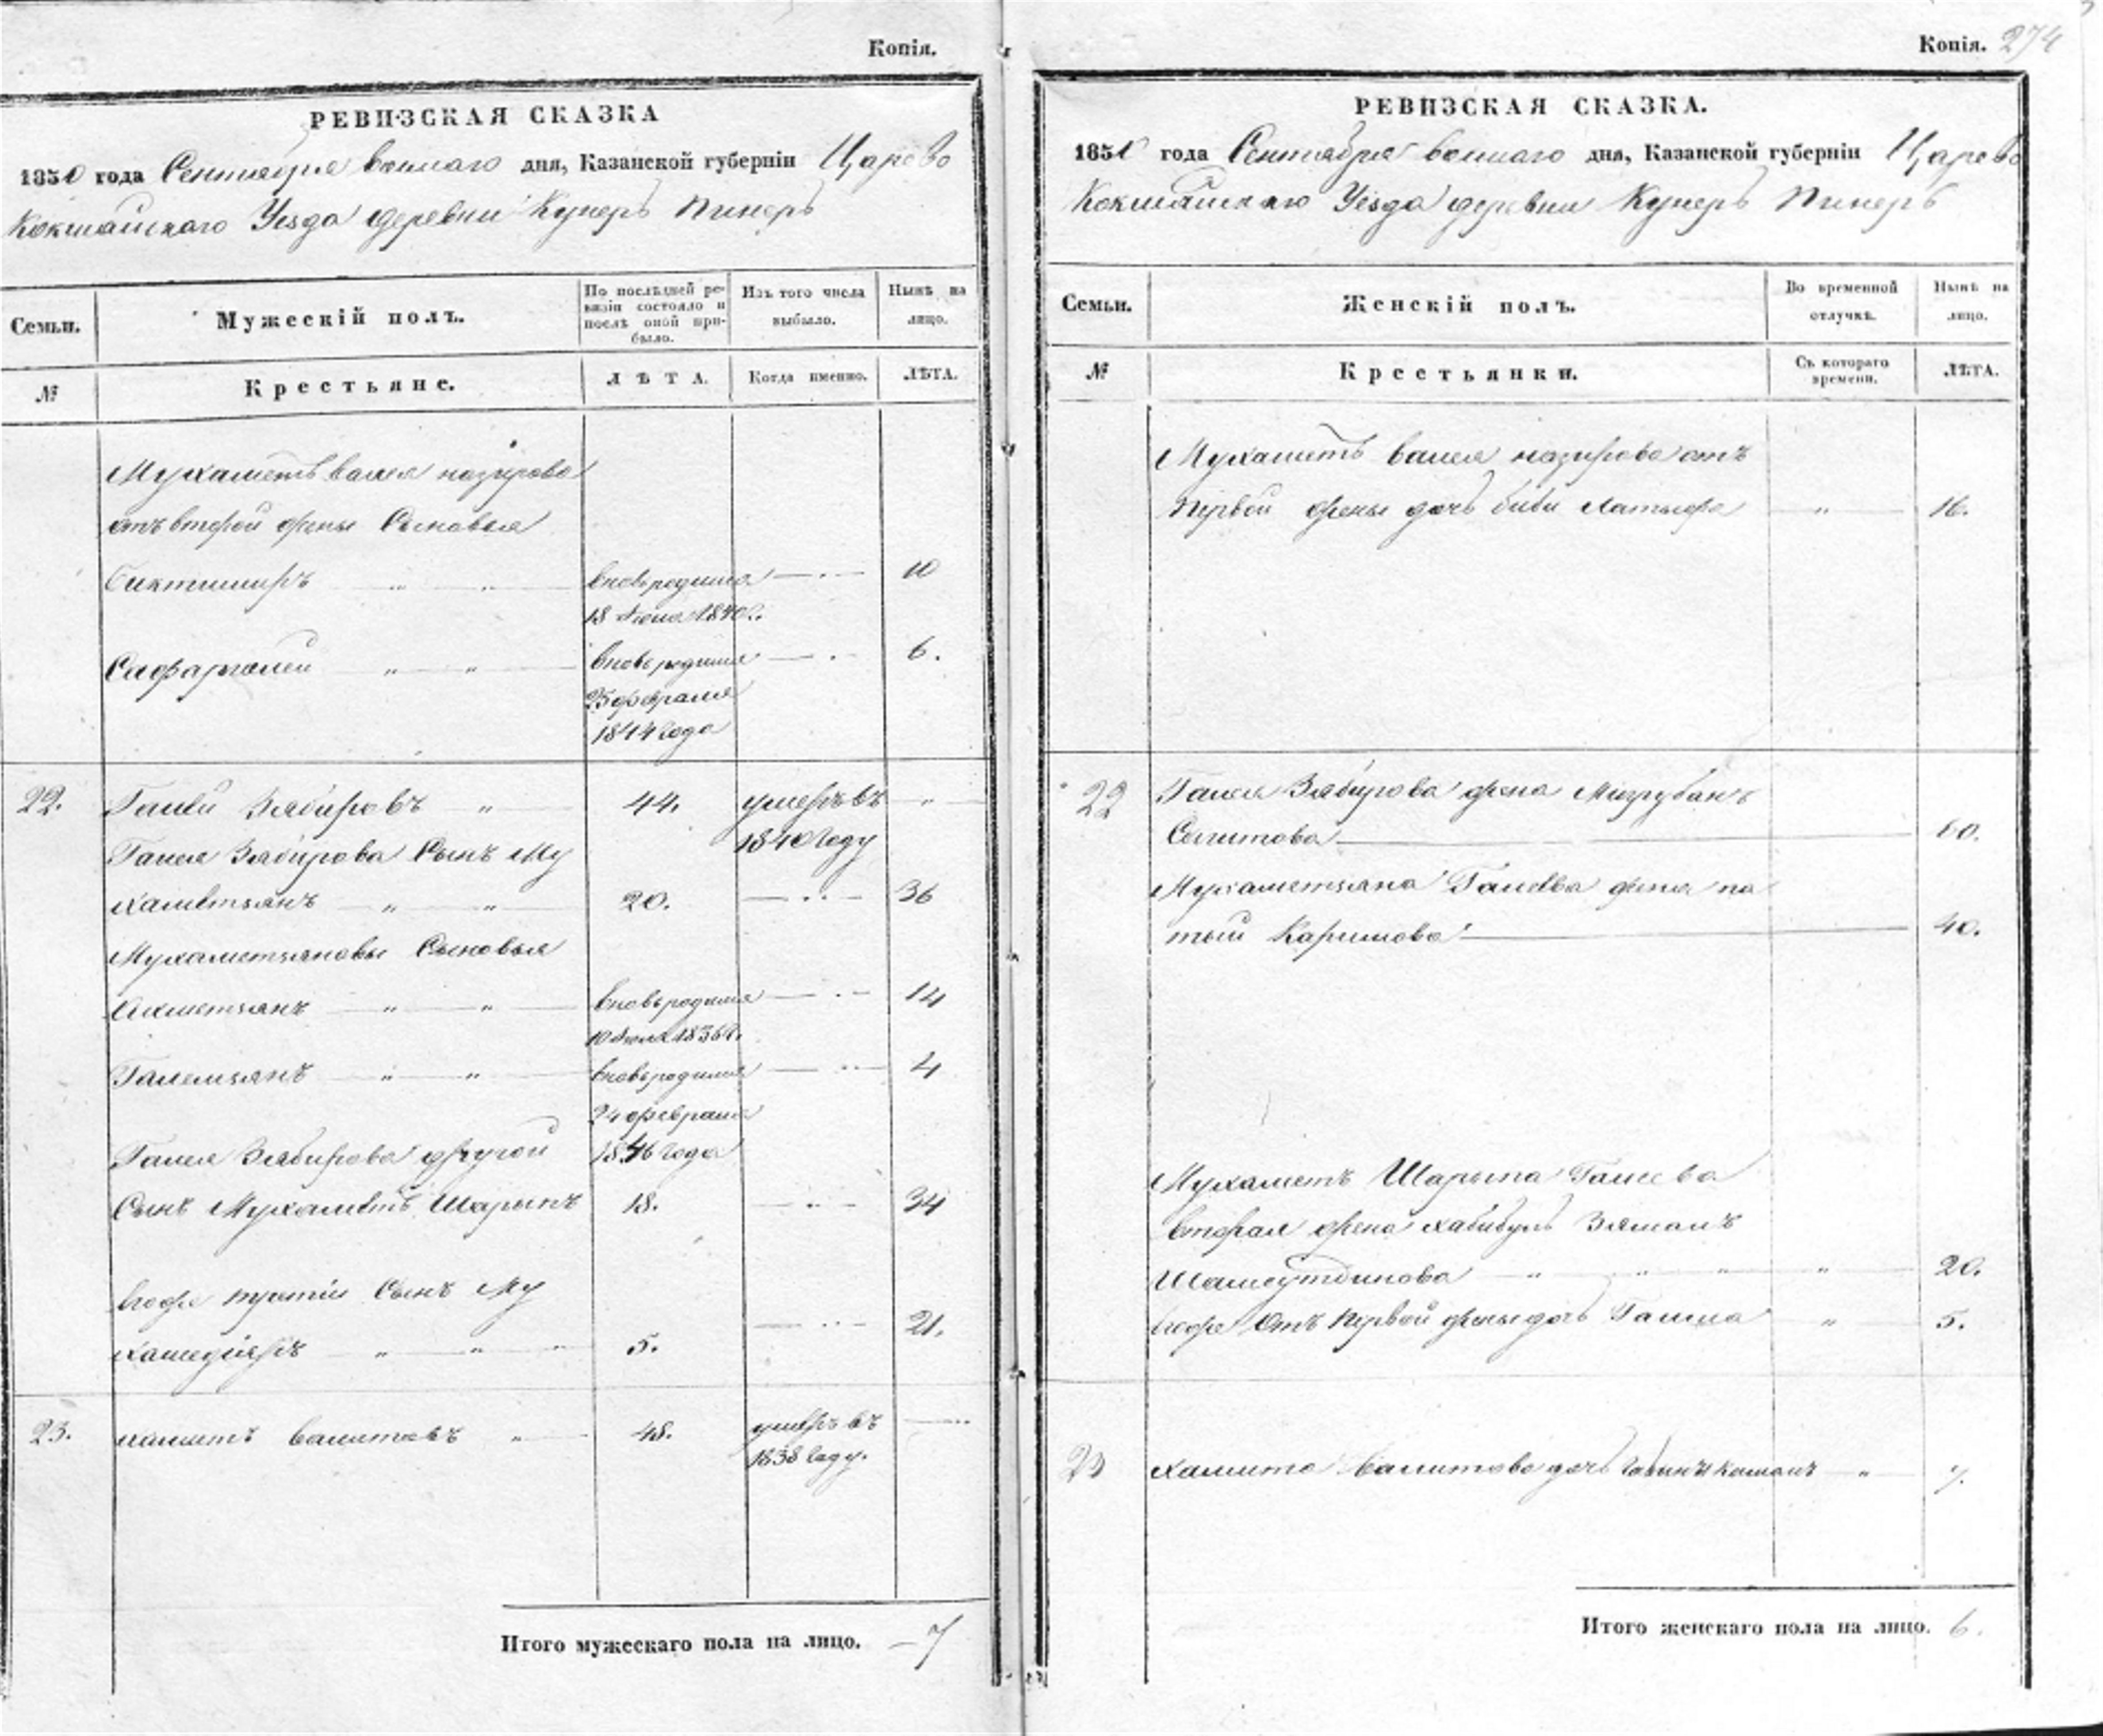 Копія.
РЕВИЗСКАЯ СКАЗКА
1850 года Сентября дня, Казанской губерніи Царево
Кокшайскаго Уезда деревни Куперъ Пинеръ
Семьи.
Мужескій полъ.
По послѣдней ре-
визіи состояло и
послѣ оной при-
было.
Изъ того числа
выбыло.
Нынѣ на
лицо.
№
Крестьяне.
ЛѢТА.
Когда именно.
ЛѢТА.
Мухаметь валея назирова
отъ второй жены Сыновья
Биктимиръ " " вновьродился — 10
18 1840г.
Сафаргалей " " вновьродился — 6.
25 февраля
1844 года
22. Галей Зябировъ " 44. умеръ въ "
1840 году
Галея Зябирова Сынъ Му
хаметзянъ " " 20. — 36
Мухаметзяновы Сыновья
Ахметзянъ " " вновьродился — 14
10 1836г.
Галемзянъ " " вновьродился — 4
24 февраля
1846 года
Галея Зябирова другой
Сынъ Мухаметъ Шарыпъ 18. — 34
Егоже третій Сынъ Му
хамедіяръ " " 5. — 21.
23. Хамитъ Валитовъ " 48. умеръ въ —
1838 году.
Итого мужескаго пола на лицо. — 7
Копія. 274
РЕВИЗСКАЯ СКАЗКА.
1850 года Сентября дня, Казанской губерніи Царево
Кокшайскаго Уезда деревни Куперъ Пинеръ
Семьи.
Женскій полъ.
Во временной
отлучкѣ.
Нынѣ на
лицо.
№
Крестьянки.
Съ котораго
времени.
ЛѢТА.
Мухаметь валея назирова отъ
первой жены дочь биби Латыфа " 16.
22 Галея Зябирова жена Мигрубанъ
Сагитова 60.
Мухаметзяна Галеева жена па
тый Каримова 40.
Мухаметъ Шарыпа Галеева
вторая жена хабибулъ Зяманъ
Шамсутдинова " " " " 20.
Егоже отъ первой жены дочь Галима " 5.
23 Хамита Валитова дочь " 7.
Итого женскаго пола на лицо. 6.